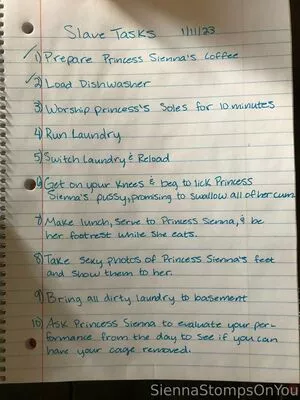 Slave Tasks 1/11/23
✓1) Prepare Princess Sienna's Coffee
✓2) Load Dishwasher
3) Worship Princess's Soles for 10 minutes
4) Run Laundry
5) Switch Laundry & Reload
6) Get on your knees & beg to lick Princess
Sienna's pussy, promising to swallow all of her cum.
7) Make lunch, serve to Princess Sienna, & be
her footrest while she eats.
8) Take sexy photos of Princess Sienna's feet
and show them to her.
9) Bring all dirty laundry to basement
10) Ask Princess Sienna to evaluate your per-
formance from the day to see if you can
have your cage removed.
SiennaStompsOnYou